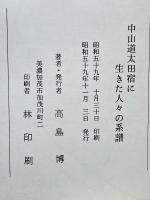 中山道太田宿に
生きた人々の系譜
昭和五十九年 十月三十日 印刷
昭和五十九年十一月三日 発行
著者・発行者 高島博
美濃加茂市加茂川町二
印刷者 林印刷